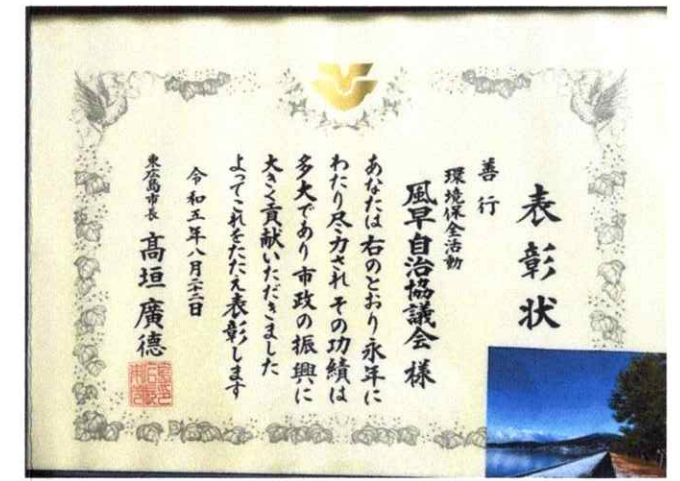 表彰状
善行
環境保全活動
風早自治協議会 様
あなたは右のとおり永年に
わたり尽力され その功績は
多大であり市政の振興に
大きく貢献いただきました
よってこれをたたえ表彰します
令和五年八月二十二日
東広島市長 髙垣廣徳